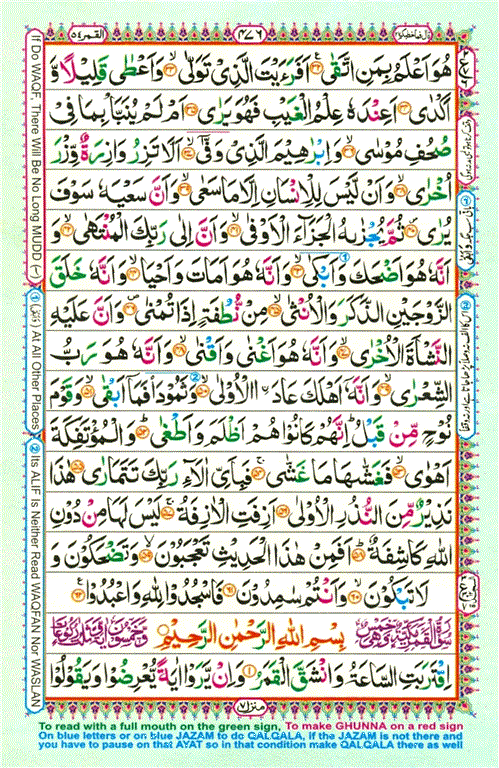 القمر ٥٤
٤٧٦
قال فما خطبكم ٢٧
هُوَ اَعْلَمُ بِمَنِ اتَّقٰى ۟ اَفَرَءَيْتَ الَّذِيْ تَوَلّٰى ۟ وَاَعْطٰى قَلِيْلًا وَّ
اَكْدٰى ۟ اَعِنْدَهٗ عِلْمُ الْغَيْبِ فَهُوَ يَرٰى ۟ اَمْ لَمْ يُنَبَّاْ بِمَا فِيْ
صُحُفِ مُوْسٰى ۟ وَاِبْرٰهِيْمَ الَّذِيْ وَفّٰٓى ۟ اَلَّا تَزِرُ وَازِرَةٌ وِّزْرَ
اُخْرٰى ۟ وَاَنْ لَّيْسَ لِلْاِنْسَانِ اِلَّا مَا سَعٰى ۟ وَاَنَّ سَعْيَهٗ سَوْفَ
يُرٰى ۟ ثُمَّ يُجْزٰىهُ الْجَزَآءَ الْاَوْفٰى ۟ وَاَنَّ اِلٰى رَبِّكَ الْمُنْتَهٰى ۟ وَ
اَنَّهٗ هُوَ اَضْحَكَ وَاَبْكٰى ۟ وَاَنَّهٗ هُوَ اَمَاتَ وَاَحْيَا ۟ وَاَنَّهٗ خَلَقَ
الزَّوْجَيْنِ الذَّكَرَ وَالْاُنْثٰى ۟ مِنْ نُّطْفَةٍ اِذَا تُمْنٰى ۟ وَاَنَّ عَلَيْهِ
النَّشْاَةَ الْاُخْرٰى ۟ وَاَنَّهٗ هُوَ اَغْنٰى وَاَقْنٰى ۟ وَاَنَّهٗ هُوَ رَبُّ
الشِّعْرٰى ۟ وَاَنَّهٗٓ اَهْلَكَ عَادَا ِۨالْاُوْلٰى ۟ وَثَمُوْدَا۟ فَمَآ اَبْقٰى ۟ وَقَوْمَ
نُوْحٍ مِّنْ قَبْلُ ؕ اِنَّهُمْ كَانُوْا هُمْ اَظْلَمَ وَاَطْغٰى ۟ وَالْمُؤْتَفِكَةَ
اَهْوٰى ۟ فَغَشّٰىهَا مَا غَشّٰى ۟ فَبِاَيِّ اٰلَآءِ رَبِّكَ تَتَمَارٰى ۟ هٰذَا
نَذِيْرٌ مِّنَ النُّذُرِ الْاُوْلٰى ۟ اَزِفَتِ الْاٰزِفَةُ ۟ لَيْسَ لَهَا مِنْ دُوْنِ
اللّٰهِ كَاشِفَةٌ ۟ اَفَمِنْ هٰذَا الْحَدِيْثِ تَعْجَبُوْنَ ۟ وَتَضْحَكُوْنَ وَ
لَا تَبْكُوْنَ ۟ وَاَنْتُمْ سٰمِدُوْنَ ۟ فَاسْجُدُوْا لِلّٰهِ وَاعْبُدُوْا ۟
بِسْمِ اللّٰهِ الرَّحْمٰنِ الرَّحِيْمِ
اِقْتَرَبَتِ السَّاعَةُ وَانْشَقَّ الْقَمَرُ ۟ وَاِنْ يَّرَوْا اٰيَةً يُّعْرِضُوْا وَيَقُوْلُوْا
منزل ٧
If Do WAQF, There Will Be No Long MUDD (–) ① At All Other Places
② Its ALIF Is Neither Read WAQFAN Nor WASLAN
To read with a full mouth on the green sign, To make GHUNNA on a red sign
On blue letters or on blue JAZAM to do QALQALA, if the JAZAM is not there and
you have to pause on that AYAT so in that condition make QALQALA there as well